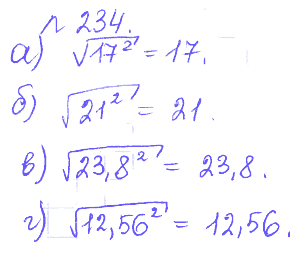 № 234.
а) √17² = 17.
б) √21² = 21.
в) √23,8² = 23,8.
г) √12,56² = 12,56.